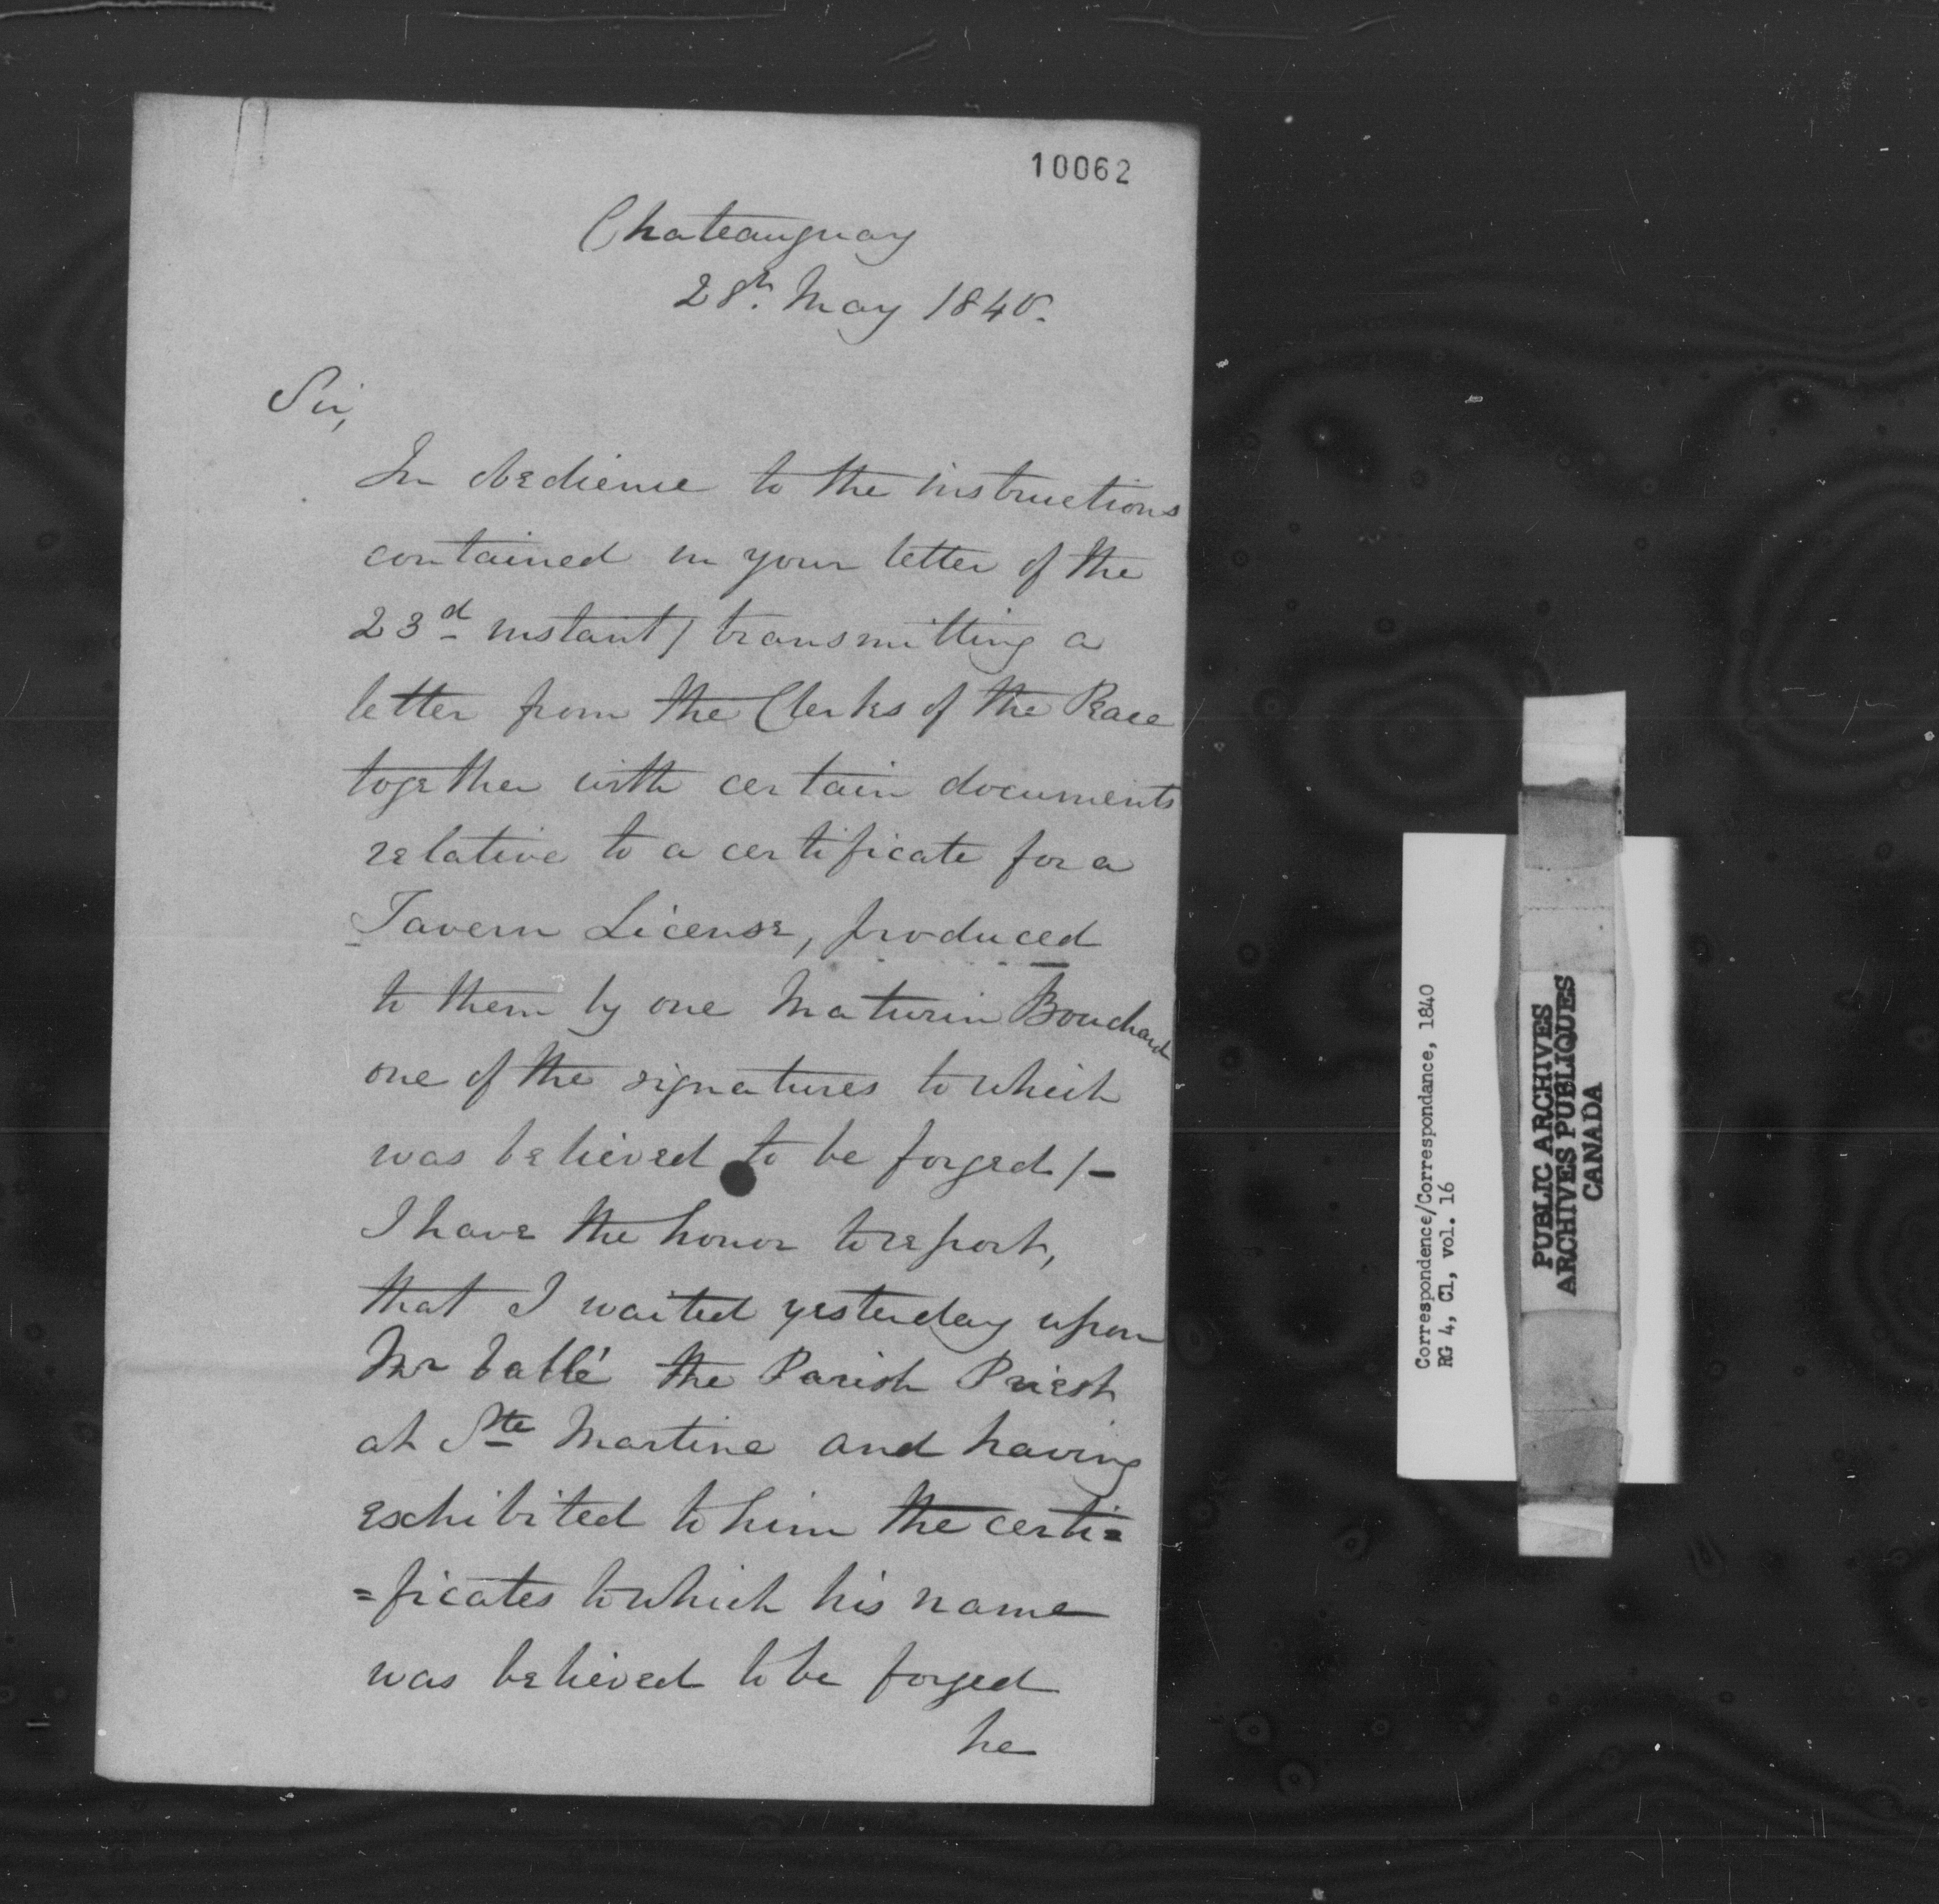 10062
Chateauguay
28th. May 1840.
Sir,
In obedience to the instructions
contained in your letter of the
23d instant / transmitting a
letter from the Clerks of the Peace
together with certain documents
relative to a certificate for a
Tavern License, produced
to them by one Maturin Bouchard
one of the signatures to which
was believed to be forged /-
I have the honor to report,
that I waited yesterday upon
Mr Vallé the Parish Priest
at Ste Martine and having
exhibited to him the certi=
=ficates to which his name
was believed to be forged
he
Correspondence/Correspondance, 1840
RG 4, C1, vol. 16
PUBLIC ARCHIVES
ARCHIVES PUBLIQUES
CANADA